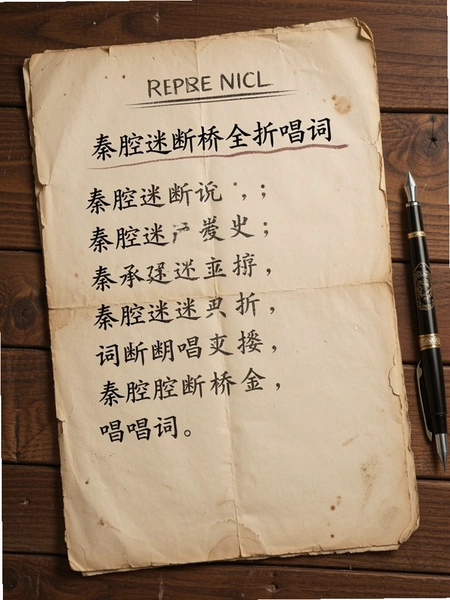 REPBE NICL
秦腔迷断桥全折唱词
秦腔迷断说，；
秦腔迷史；
秦承迷，
秦腔迷迷折，
词断唱，
秦腔腔断桥金，
唱唱词。